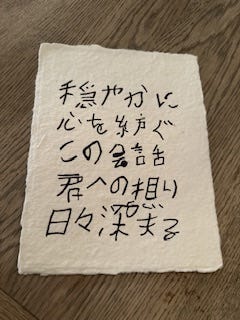 穏やかに
心を紡ぐ
この会話
君への想り
日々深まる